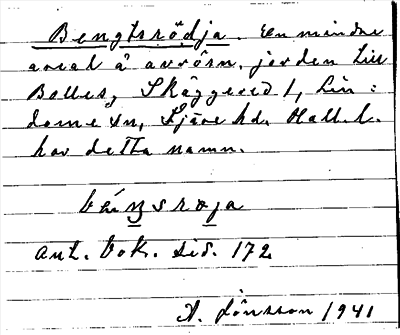 Bengtsrödja. En mindre
areal å avrösn. jorden till
Balles, Skäggered 1, Lin=
dome sn, Fjäre hd. Hall. l.
har detta namn.
béŋsrøja
ant. bok. sid. 172
A. Jönsson 1941